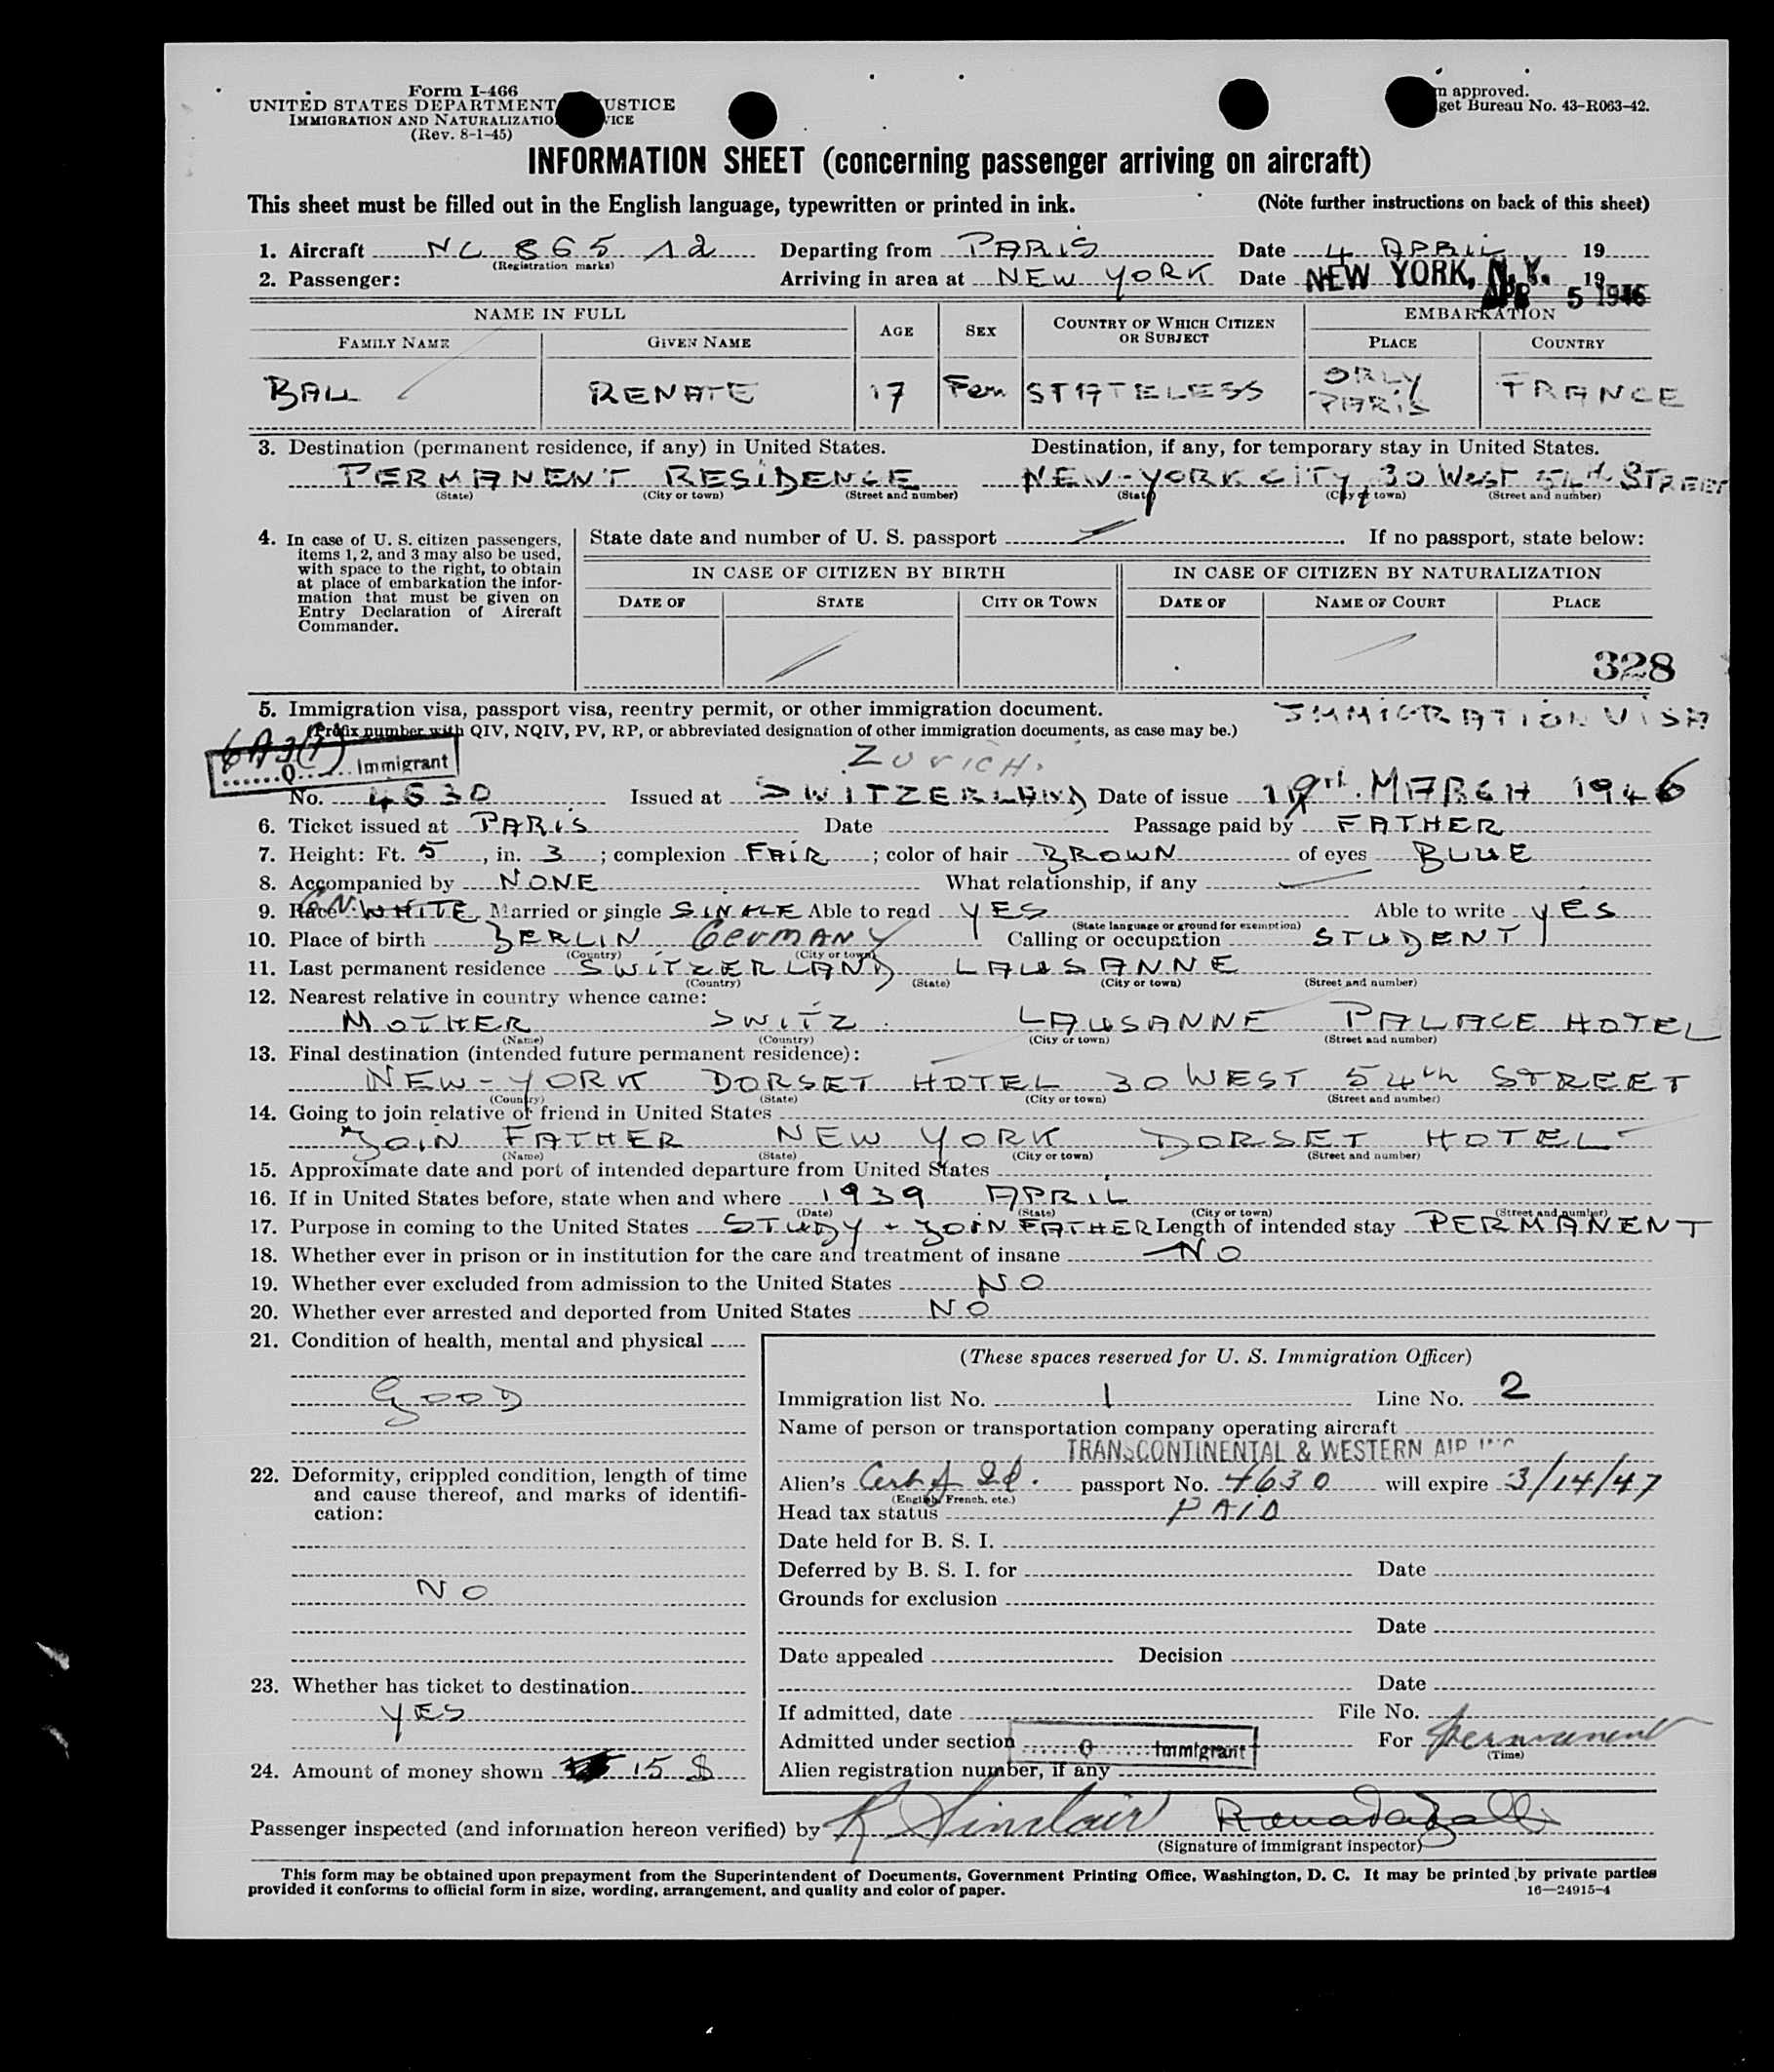 Form I-466
UNITED STATES DEPARTMENT USTICE
IMMIGRATION AND NATURALIZATIO VICE
(Rev. 8-1-45)
n approved.
get Bureau No. 43-R063-42.
INFORMATION SHEET (concerning passenger arriving on aircraft)
This sheet must be filled out in the English language, typewritten or printed in ink. (Note further instructions on back of this sheet)
1. Aircraft NC 865 12 Departing from PARIS Date 4 APRIL 19
(Registration marks)
2. Passenger: Arriving in area at NEW YORK Date NEW YORK, N.Y. 19
APR 5 1946
NAME IN FULL AGE SEX COUNTRY OF WHICH CITIZEN OR SUBJECT EMBARKATION
FAMILY NAME GIVEN NAME PLACE COUNTRY
BALL RENATE 17 Fem STATELESS ORLY PARIS FRANCE
3. Destination (permanent residence, if any) in United States. Destination, if any, for temporary stay in United States.
PERMANENT RESIDENCE NEW-YORK CITY, 30 West 54th STREET
(State) (City or town) (Street and number) (State) (City or town) (Street and number)
4. In case of U. S. citizen passengers, items 1, 2, and 3 may also be used, with space to the right, to obtain at place of embarkation the information that must be given on Entry Declaration of Aircraft Commander.
State date and number of U. S. passport If no passport, state below:
IN CASE OF CITIZEN BY BIRTH IN CASE OF CITIZEN BY NATURALIZATION
DATE OF STATE CITY OR TOWN DATE OF NAME OF COURT PLACE
328
5. Immigration visa, passport visa, reentry permit, or other immigration document. IMMIGRATION VISA
(Prefix number with QIV, NQIV, PV, RP, or abbreviated designation of other immigration documents, as case may be.)
Q Immigrant
ZURICH.
No. 4630 Issued at SWITZERLAND Date of issue MARCH 1946
6. Ticket issued at PARIS Date Passage paid by FATHER
7. Height: Ft. 5, in. 3; complexion FAIR; color of hair BROWN of eyes BLUE
8. Accompanied by NONE What relationship, if any
9. Race WHITE Married or single SINGLE Able to read YES Able to write YES
(State language or ground for exemption)
10. Place of birth BERLIN GERMANY Calling or occupation STUDENT
(Country) (City or town)
11. Last permanent residence SWITZERLAND LAUSANNE
(Country) (State) (City or town) (Street and number)
12. Nearest relative in country whence came:
MOTHER SWITZ. LAUSANNE PALACE HOTEL
(Name) (Country) (City or town) (Street and number)
13. Final destination (intended future permanent residence):
NEW-YORK DORSET HOTEL 30 WEST 54th STREET
(Country) (State) (City or town) (Street and number)
14. Going to join relative or friend in United States
JOIN FATHER NEW YORK DORSET HOTEL
(Name) (State) (City or town) (Street and number)
15. Approximate date and port of intended departure from United States
16. If in United States before, state when and where 1939 APRIL
(Date) (State) (City or town) (Street and number)
17. Purpose in coming to the United States STUDY + JOIN FATHER Length of intended stay PERMANENT
18. Whether ever in prison or in institution for the care and treatment of insane NO
19. Whether ever excluded from admission to the United States NO
20. Whether ever arrested and deported from United States NO
21. Condition of health, mental and physical
GOOD
22. Deformity, crippled condition, length of time and cause thereof, and marks of identification:
NO
23. Whether has ticket to destination
YES
24. Amount of money shown 15 $
(These spaces reserved for U. S. Immigration Officer)
Immigration list No. 1 Line No. 2
Name of person or transportation company operating aircraft
TRANSCONTINENTAL & WESTERN AIR INC
Alien's Cert of Id. passport No. 4630 will expire 3/14/47
(English, French, etc.)
Head tax status PAID
Date held for B. S. I.
Deferred by B. S. I. for Date
Grounds for exclusion
Date
Date appealed Decision
Date
If admitted, date File No.
Admitted under section Q Immigrant For permanent
(Time)
Alien registration number, if any
Passenger inspected (and information hereon verified) by R Sinclair
(Signature of immigrant inspector)
This form may be obtained upon prepayment from the Superintendent of Documents, Government Printing Office, Washington, D. C. It may be printed by private parties
provided it conforms to official form in size, wording, arrangement, and quality and color of paper. 16—24915-4